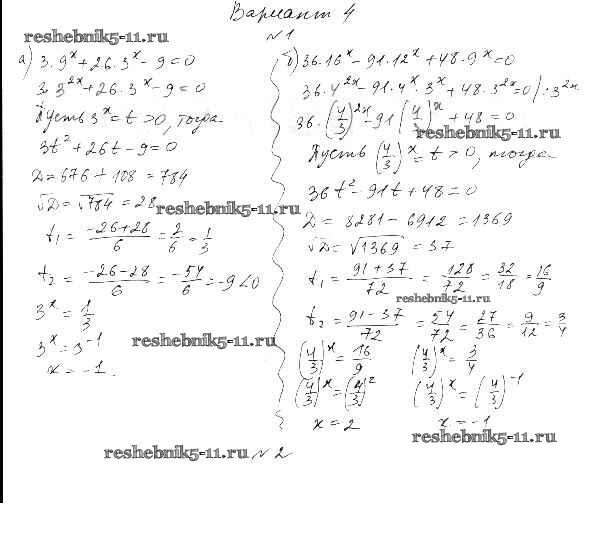 Вариант 4
reshebnik5-11.ru
№1
а) 3·9^x + 26·3^x - 9 = 0
3·3^2x + 26·3^x - 9 = 0
Пусть 3^x = t > 0, тогда
3t² + 26t - 9 = 0
D = 676 + 108 = 784
√D = √784 = 28
reshebnik5-11.ru
t₁ = (-26+28)/6 = 2/6 = 1/3
t₂ = (-26-28)/6 = -54/6 = -9 < 0
3^x = 1/3
reshebnik5-11.ru
3^x = 3^-1
x = -1.
б) 36·16^x - 91·12^x + 48·9^x = 0
36·4^2x - 91·4^x·3^x + 48·3^2x = 0 | : 3^2x
36·(4/3)^2x - 91(4/)^x + 48 = 0
reshebnik5-11.ru
Пусть (4/3)^x = t > 0, тогда
36t² - 91t + 48 = 0
D = 8281 - 6912 = 1369
√D = √1369 = 37
t₁ = (91+37)/72 = 128/72 = 32/18 = 16/9
reshebnik5-11.ru
t₂ = (91-37)/72 = 54/72 = 27/36 = 9/12 = 3/4
(4/3)^x = 16/9 (4/3)^x = 3/4
(4/3)^x = (4/3)^2 (4/3)^x = (4/3)^-1
x = 2 x = -1
reshebnik5-11.ru
reshebnik5-11.ru №2